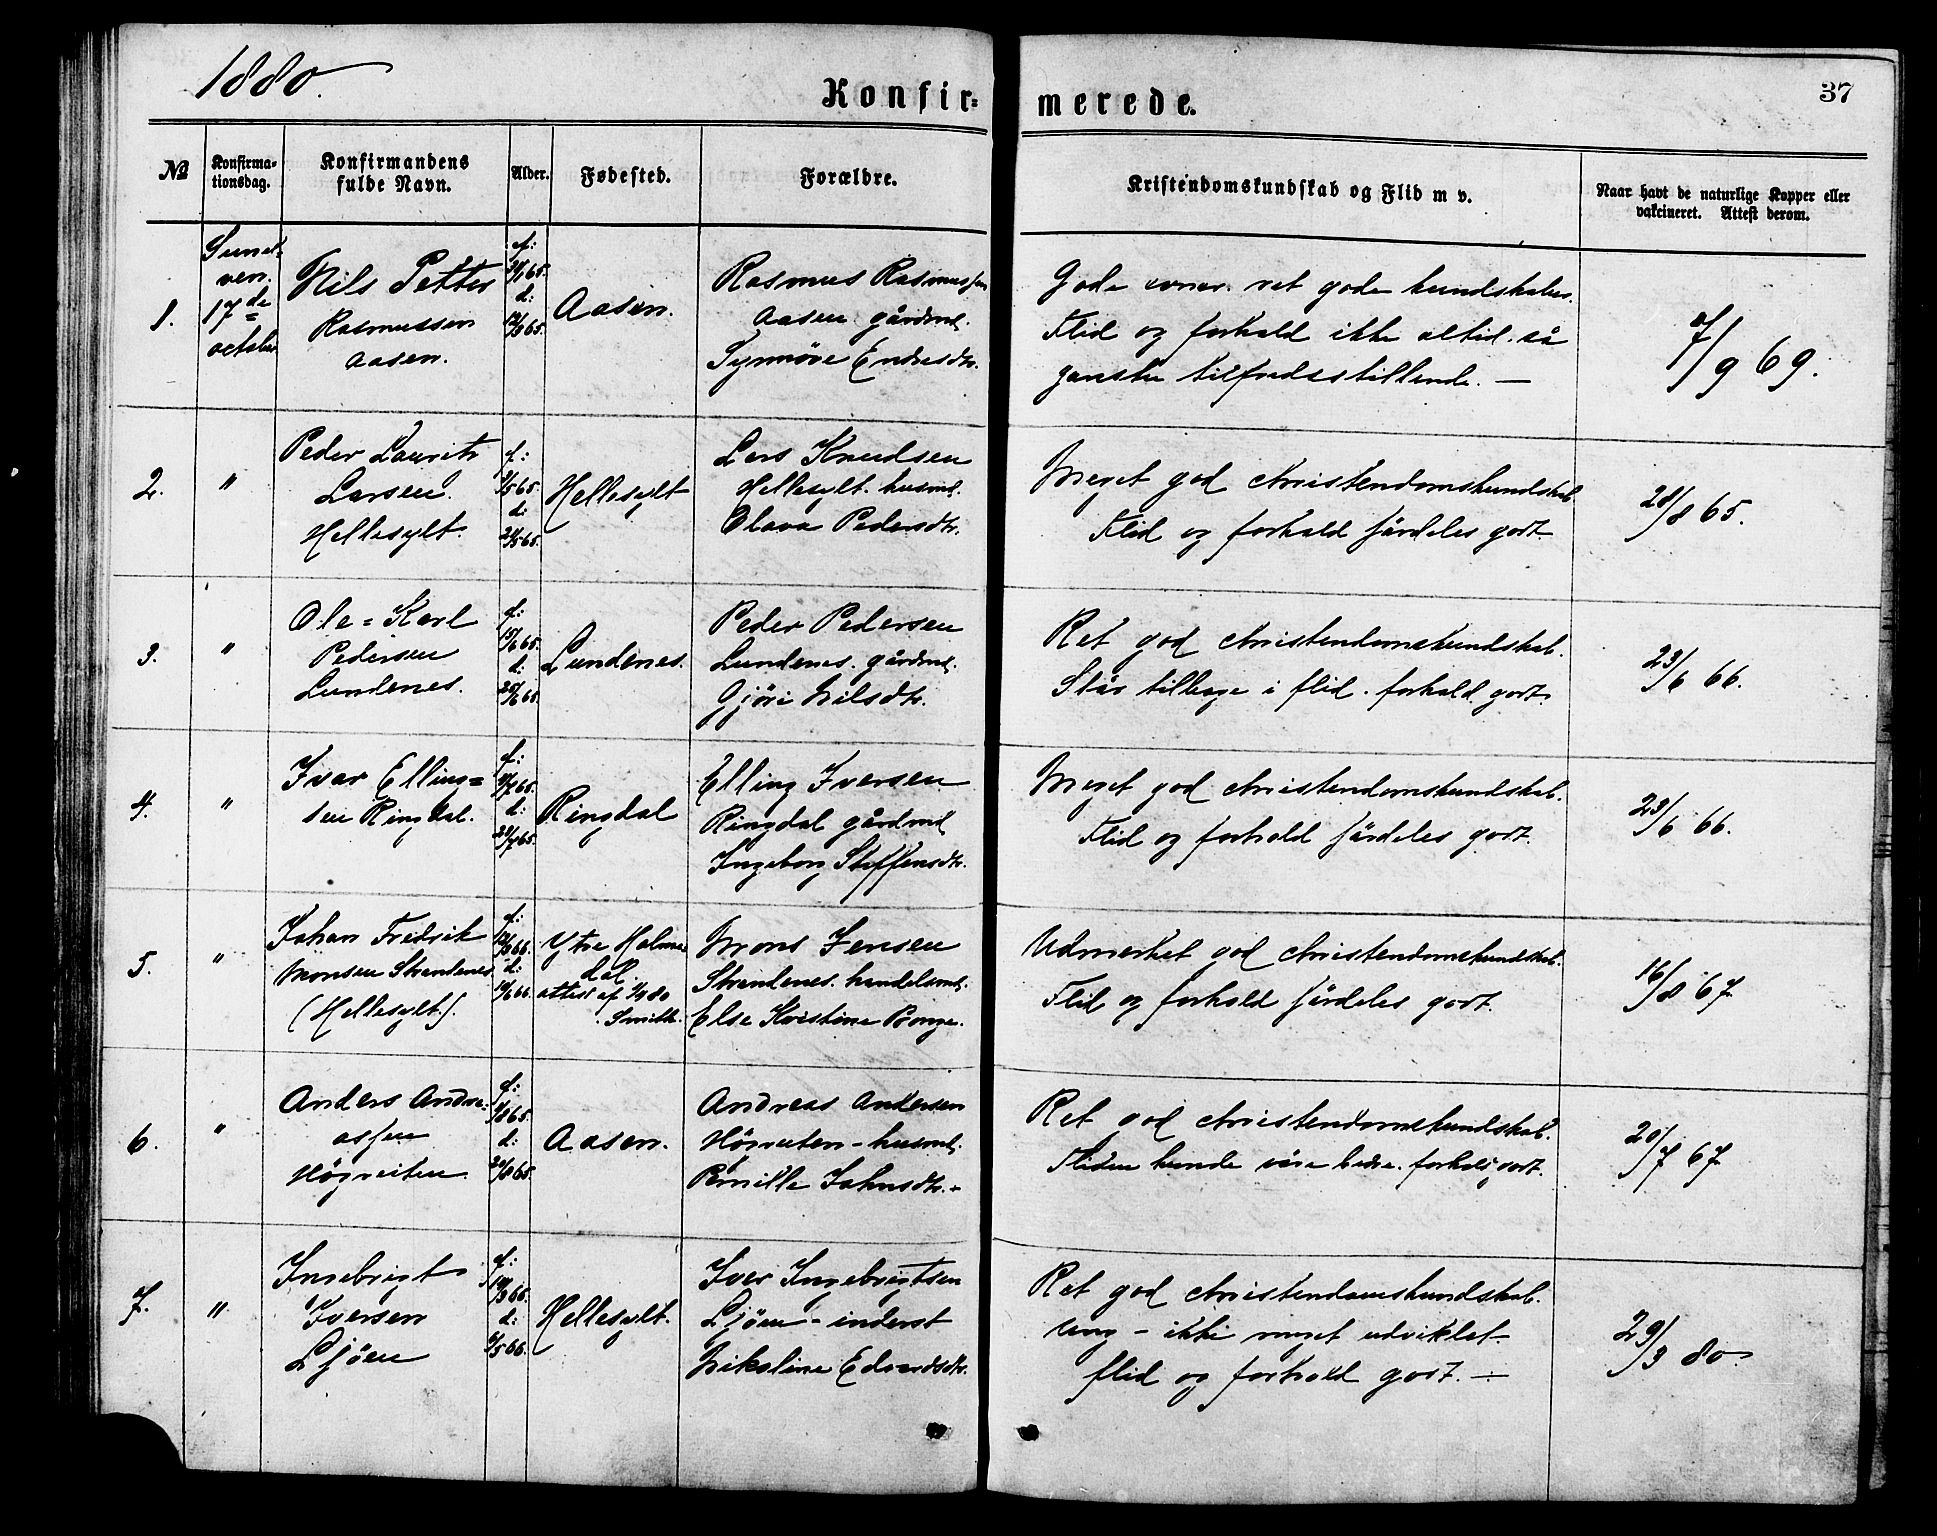 1880.
Konfir=
merede.
37
No
Konfirma-
tionsdag.
Konfirmandens
fulde Navn.
Alder.
Fødested.
Forældre.
Kristendomskundskab og Flid m v.
Naar havt de naturlige Kopper eller
vakcineret. Attest derom.
1.
Sunel-
ven.
17de
october
Nils Petter
Rasmussen
Aasen.
f:
65.
d:
65.
Aasen.
Rasmus Rasmussen
Aasen gårdmd.
Synnøve Endresdtr.
Gode evner. ret gode kundskaber.
Flid og forhold ikke altid så
ganske tilfredsstillende. —
7/9 69.
2.
"
Peder Laurits
Larsen.
Hellesylt.
f:
3/5 65.
d:
21/5 65.
Hellesylt
Lars Knudsen
Hellesylt. husmd.
Olava Pedersdtr.
Meget god christendomskundskab
Flid og forhold særdeles godt
28/8 65.
3.
"
Ole = Karl
Pedersen
Lundenes.
f:
15/6 65.
d:
25/6 65.
Lundenes.
Peder Pedersen
Lundenes. gårdmd.
Gjøri Nilsdtr.
Ret god christendomskundskab.
Står tilbage i flid. forhold godt.
23/6 66.
4.
"
Ivar Elling=
sen Ringdal.
f:
65.
d:
23/7 65.
Ringdal
Elling Iversen
Ringdal gårdmd
Ingeborg Steffensdtr.
Meget god christendomskundskab.
Flid og forhold særdeles godt.
23/6 66.
5.
"
Johan Fredrik
Monsen Strandenes
(Hellesylt).
f:
66.
d:
66.
Ytre Holme
dal.
attest af 80
Smith.
Mons Jensen
Strandenes. handelsmd.
Else Kristine Bonge.
Udmerket god christendomskundskab.
Flid og forhold særdeles godt.
16/8 67
6.
"
Anders Andre-
assen
Högreiten.
f:
65.
d:
20/8 65.
Aasen.
Andreas Andersen
Högreiten - husmd.
Pernille Johnsdtr. -
Ret god christendomskundskab.
Fliden kunde være bedre. forhold godt.
20/7 67
7.
"
Ingebrigt
Iversen
Ljöen
f:
19/3 66.
d:
/5 66.
Hellesylt.
Iver Ingebrigtsen
Ljöen - inderst
Nikoline Edvardsdtr.
Ret god christendomskundskab.
Ung - ikke meget udviklet.
flid og forhold godt. —
29/3 80